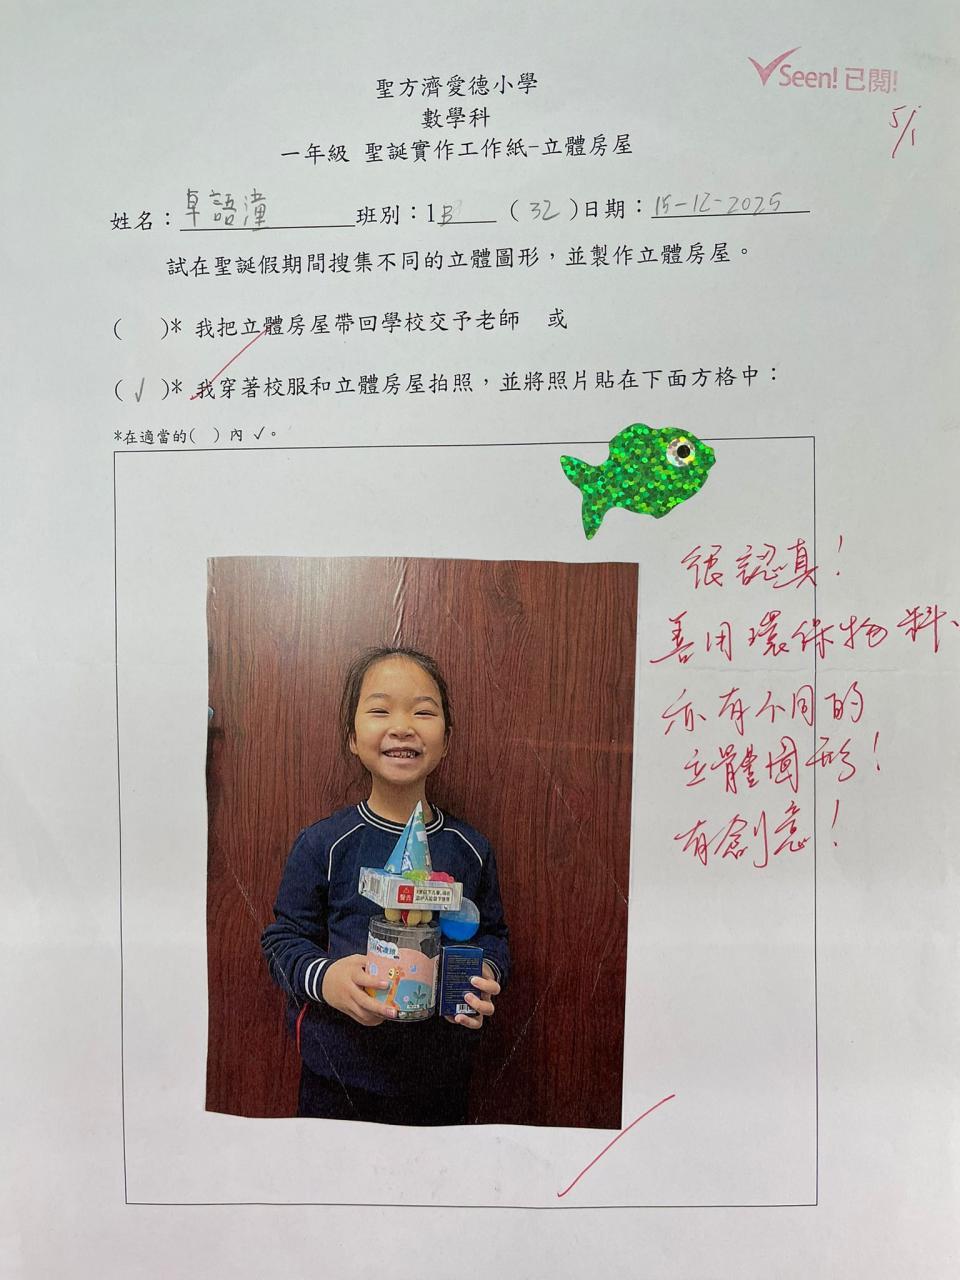 Seen! 已閱!
5/1
聖方濟愛德小學
數學科
一年級 聖誕實作工作紙-立體房屋
姓名：卓語潼 班別：1B (32)日期：15-12-2025
試在聖誕假期間搜集不同的立體圖形，並製作立體房屋。
( )* 我把立體房屋帶回學校交予老師 或
(✓)* 我穿著校服和立體房屋拍照，並將照片貼在下面方格中：
*在適當的( ) 內 ✓。
很認真！
善用環保物料、
亦有不同的
立體圖形！
有創意！
警告